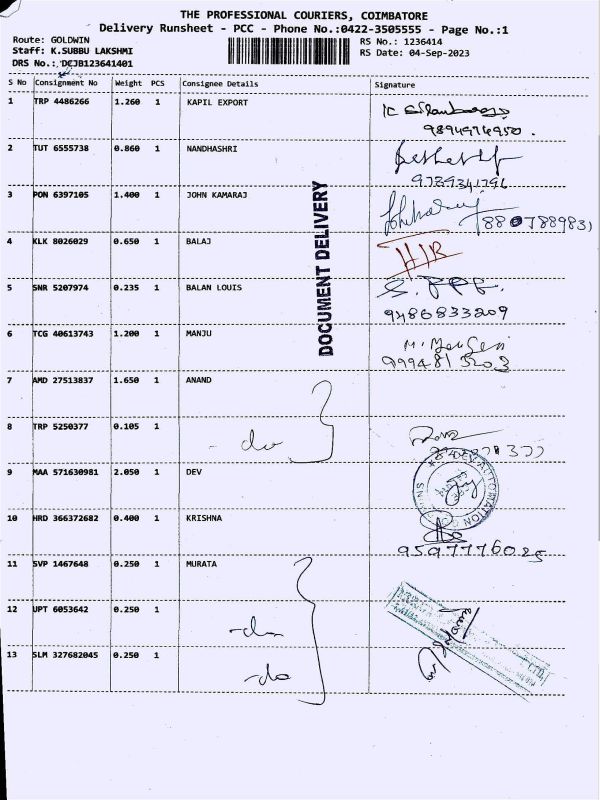 THE PROFESSIONAL COURIERS, COIMBATORE
Delivery Runsheet - PCC - Phone No.:0422-3505555 - Page No.:1
Route: GOLDWIN
RS No.: 1236414
Staff: K.SUBBU LAKSHMI
RS Date: 04-Sep-2023
DRS No.: DCJB123641401
S No Consignment No Weight PCS Consignee Details Signature
1 TRP 4486266 1.260 1 KAPIL EXPORT
9894974950.
2 TUT 6555738 0.860 1 NANDHASHRI
9789341796
3 PON 6397105 1.400 1 JOHN KAMARAJ
4 KLK 8026029 0.650 1 BALAJ
5 SNR 5207974 0.235 1 BALAN LOUIS
9486833209
6 TCG 40613743 1.200 1 MANJU
9994813203
7 AMD 27513837 1.650 1 ANAND
8 TRP 5250377 0.105 1 -do
9 MAA 571630981 2.050 1 DEV
10 HRD 366372682 0.400 1 KRISHNA
9597776025
11 SVP 1467648 0.250 1 MURATA
12 UPT 6053642 0.250 1 -do
13 SLM 327682045 0.250 1 -do
DOCUMENT DELIVERY